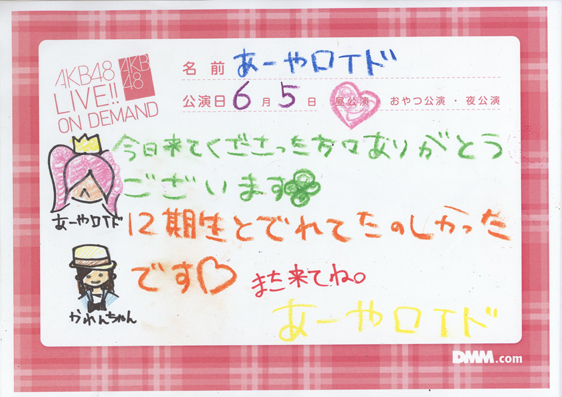 AKB48
LIVE!!
ON DEMAND
AKB
48
名前 あーやロイド
公演日 6月5日 昼公演 ・ おやつ公演 ・ 夜公演
今日来てくださった方々ありがとう
ございます
あーやロイド
12期生とでれてたのしかった
です♡
また来てね。
かれんちゃん
あーやロイド
DMM.com